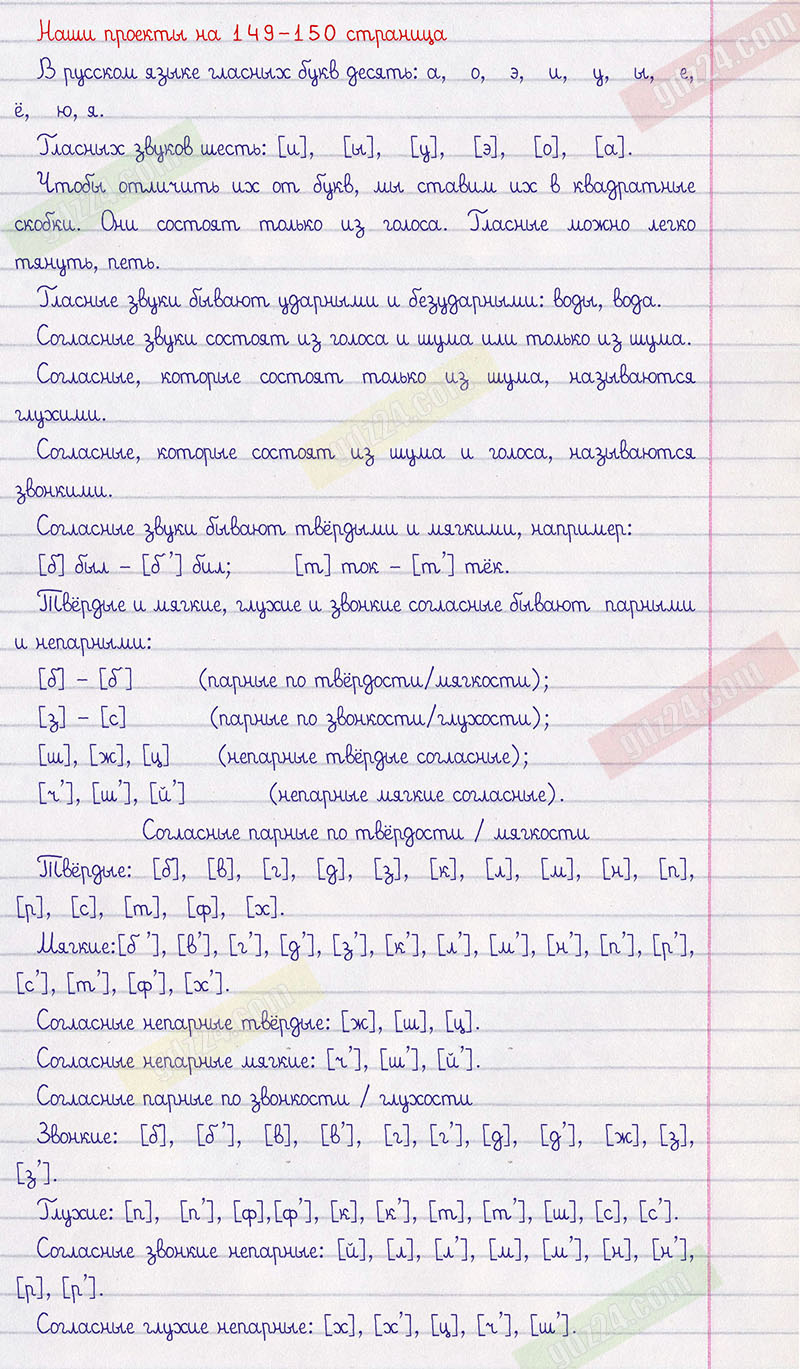 Наши проекты на 149-150 страница
В русском языке гласных букв десять: а, о, э, и, у, ы, е,
ё, ю, я.
Гласных звуков шесть: [и], [ы], [у], [э], [о], [а].
Чтобы отличить их от букв, мы ставим их в квадратные
скобки. Они состоят только из голоса. Гласные можно легко
тянуть, петь.
Гласные звуки бывают ударными и безударными: воды, вода.
Согласные звуки состоят из голоса и шума или только из шума.
Согласные, которые состоят только из шума, называются
глухими.
Согласные, которые состоят из шума и голоса, называются
звонкими.
Согласные звуки бывают твёрдыми и мягкими, например:
[б] был – [б'] бил; [т] ток – [т'] тёк.
Твёрдые и мягкие, глухие и звонкие согласные бывают парными
и непарными:
[б] – [б] (парные по твёрдости/мягкости);
[з] – [с] (парные по звонкости/глухости);
[ш], [ж], [ц] (непарные твёрдые согласные);
[ч'], [ш'], [й'] (непарные мягкие согласные).
Согласные парные по твёрдости / мягкости
Твёрдые: [б], [в], [г], [д], [з], [к], [л], [м], [н], [п],
[р], [с], [т], [ф], [х].
Мягкие:[б'], [в'], [г'], [д'], [з'], [к'], [л'], [м'], [н'], [п'], [р'],
[с'], [т'], [ф'], [х'].
Согласные непарные твёрдые: [ж], [ш], [ц].
Согласные непарные мягкие: [ч'], [ш'], [й'].
Согласные парные по звонкости / глухости
Звонкие: [б], [б'], [в], [в'], [г], [г'], [д], [д'], [ж], [з],
[з'].
Глухие: [п], [п'], [ф],[ф'], [к], [к'], [т], [т'], [ш], [с], [с'].
Согласные звонкие непарные: [й], [л], [л'], [м], [м'], [н], [н'],
[р], [р'].
Согласные глухие непарные: [х], [х'], [ц], [ч'], [ш'].
gdz24.com
gdz24.com
gdz24.com
gdz24.com
gdz24.com
gdz24.com